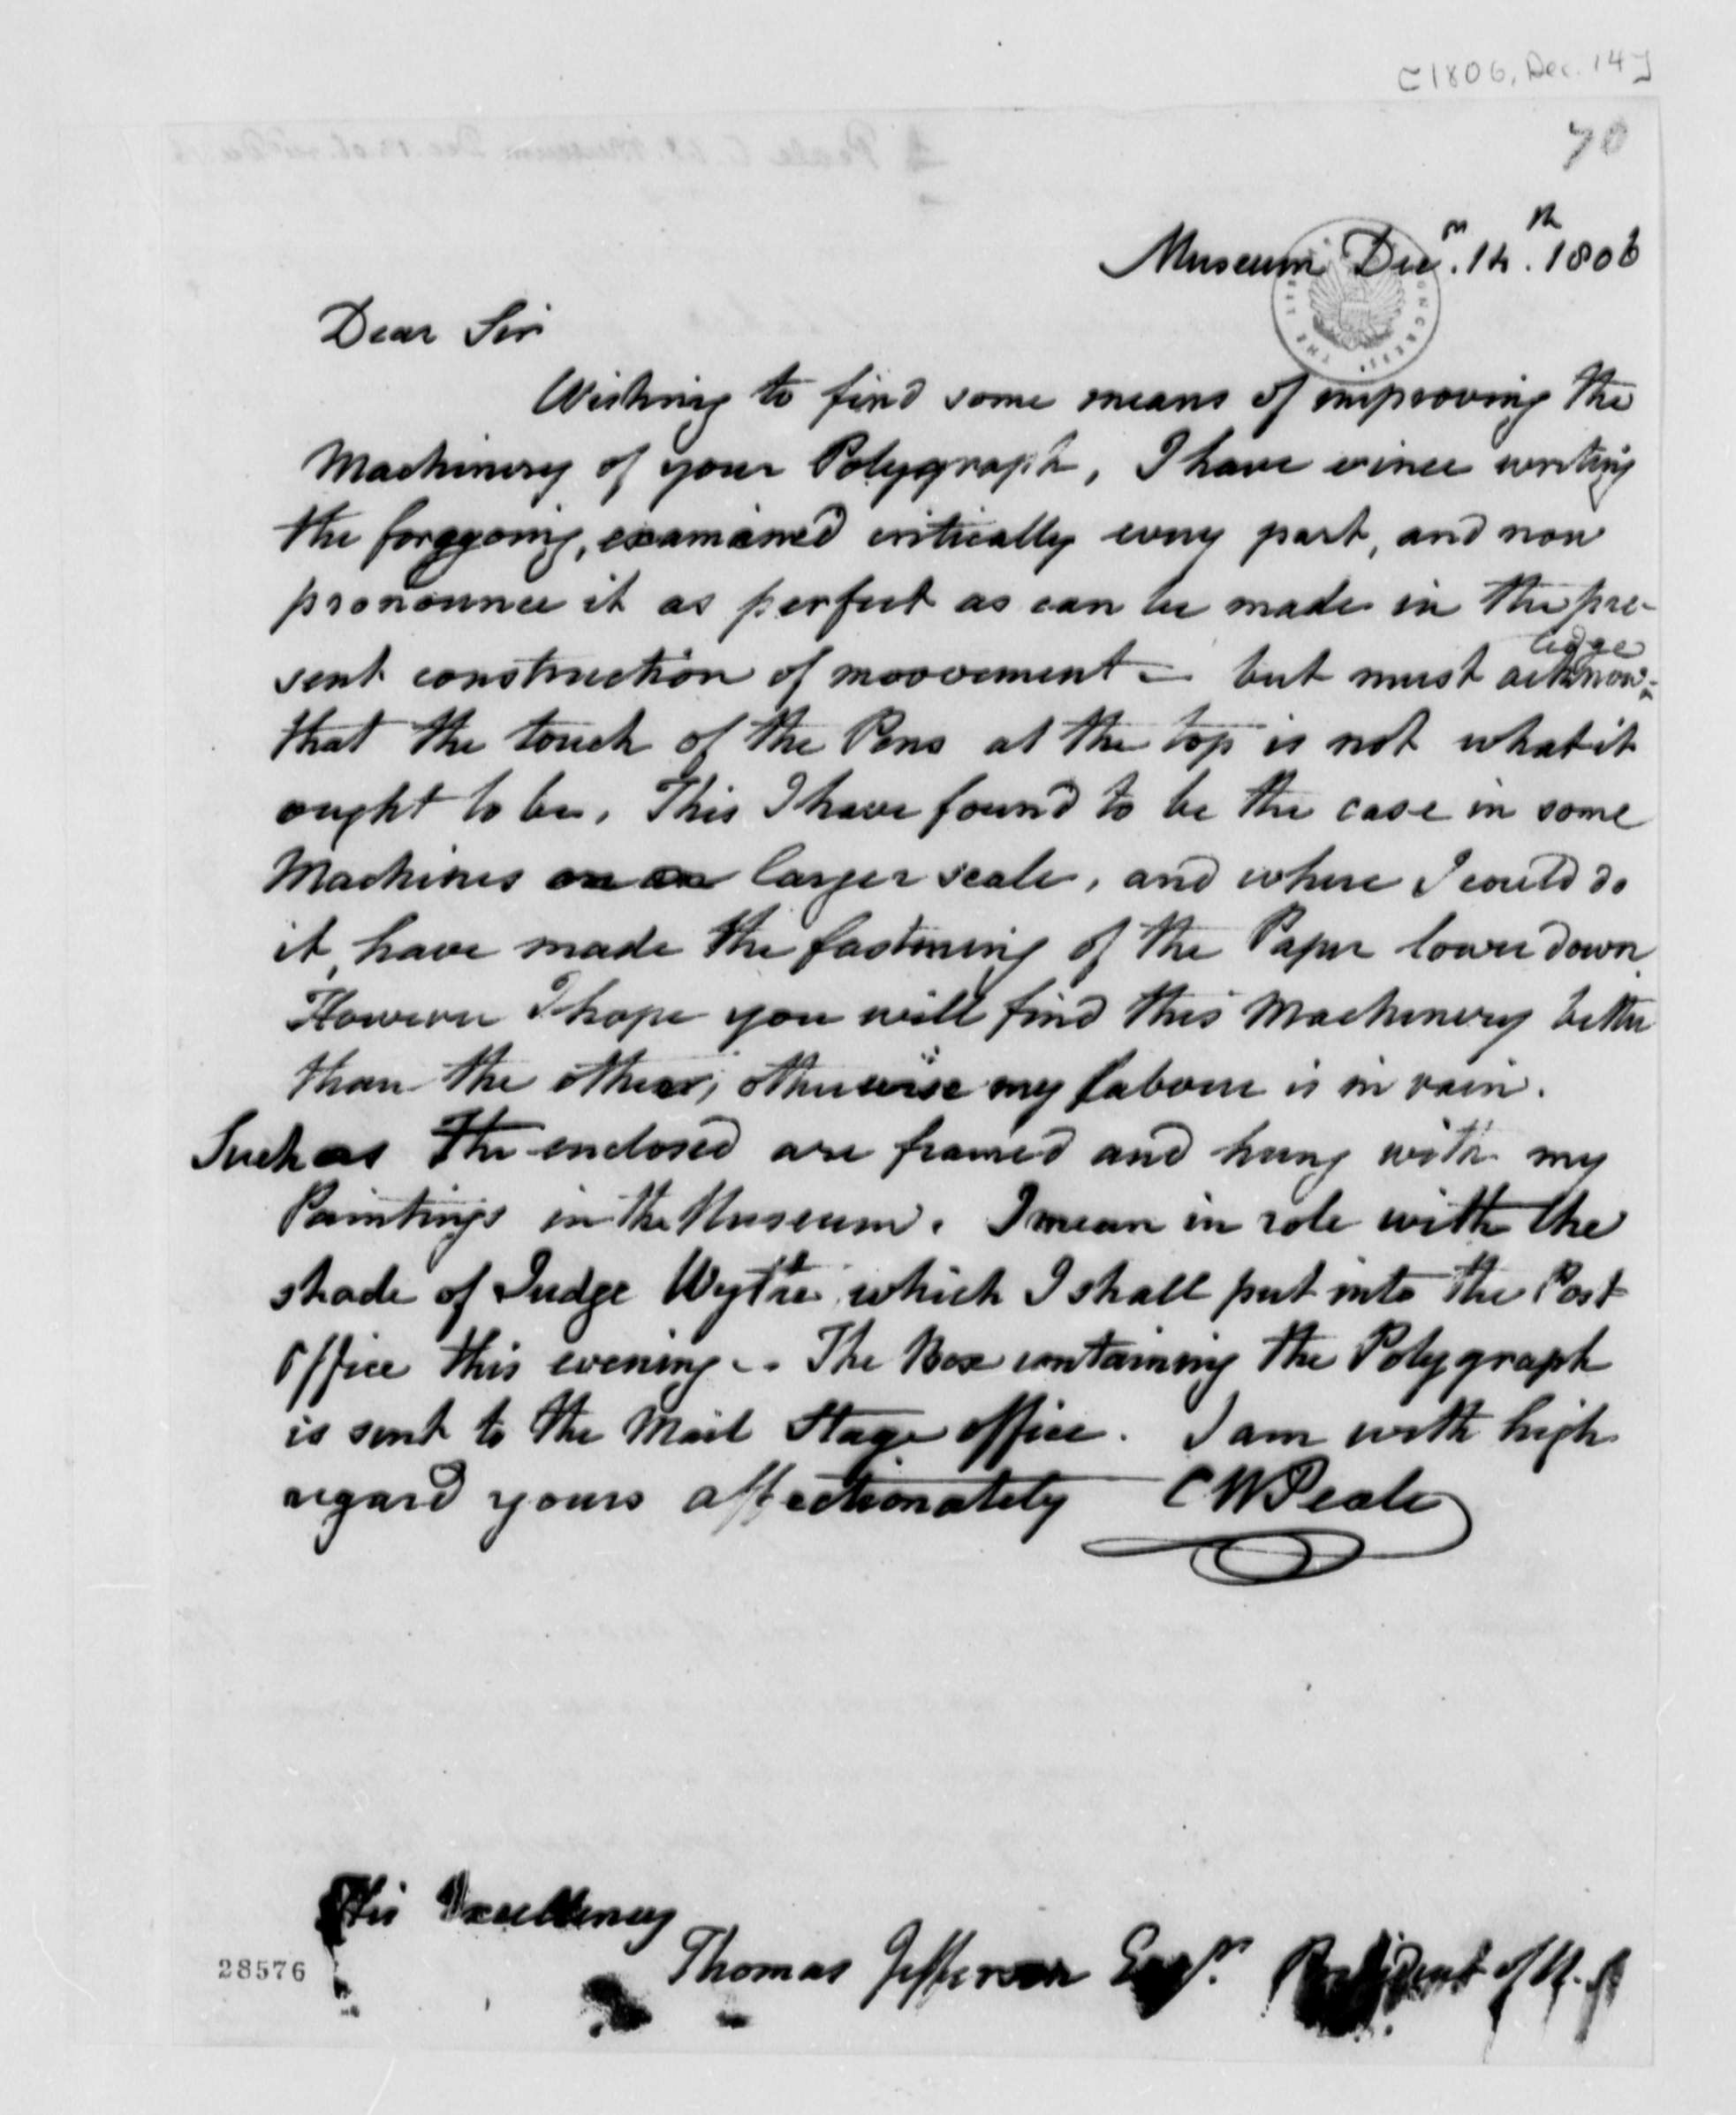 [1806, Dec. 14]
70
Museum Decr. 14th. 1806
Dear Sir
Wishing to find some means of improoving the
Machinery of your Polygraph, I have since writing
the forggoing, examined critically every part, and now
pronounce it as perfect as can be made in the pre-
sent construction of moovement — but must acknow-
ledge
that the touch of the Pens at the top is not what it
ought to be. This I have found to be the case in some
Machines on a larger scale, and where I could do
it, have made the fastening of the Paper lower down
However I hope you will find this Machinery better
than the other, otherwise my labour is in vain.
Such as The enclosed are framed and hung with my
Paintings in the Museum. I mean in role with the
shade of Judge Wythe which I shall put into the Post
Office this evening. The Box containing the Polygraph
is sent to the Mail Stage office. I am with high
regard yours affectionately CWPeale
His Excellency
Thomas Jefferson Esqr. President of U.S
28576